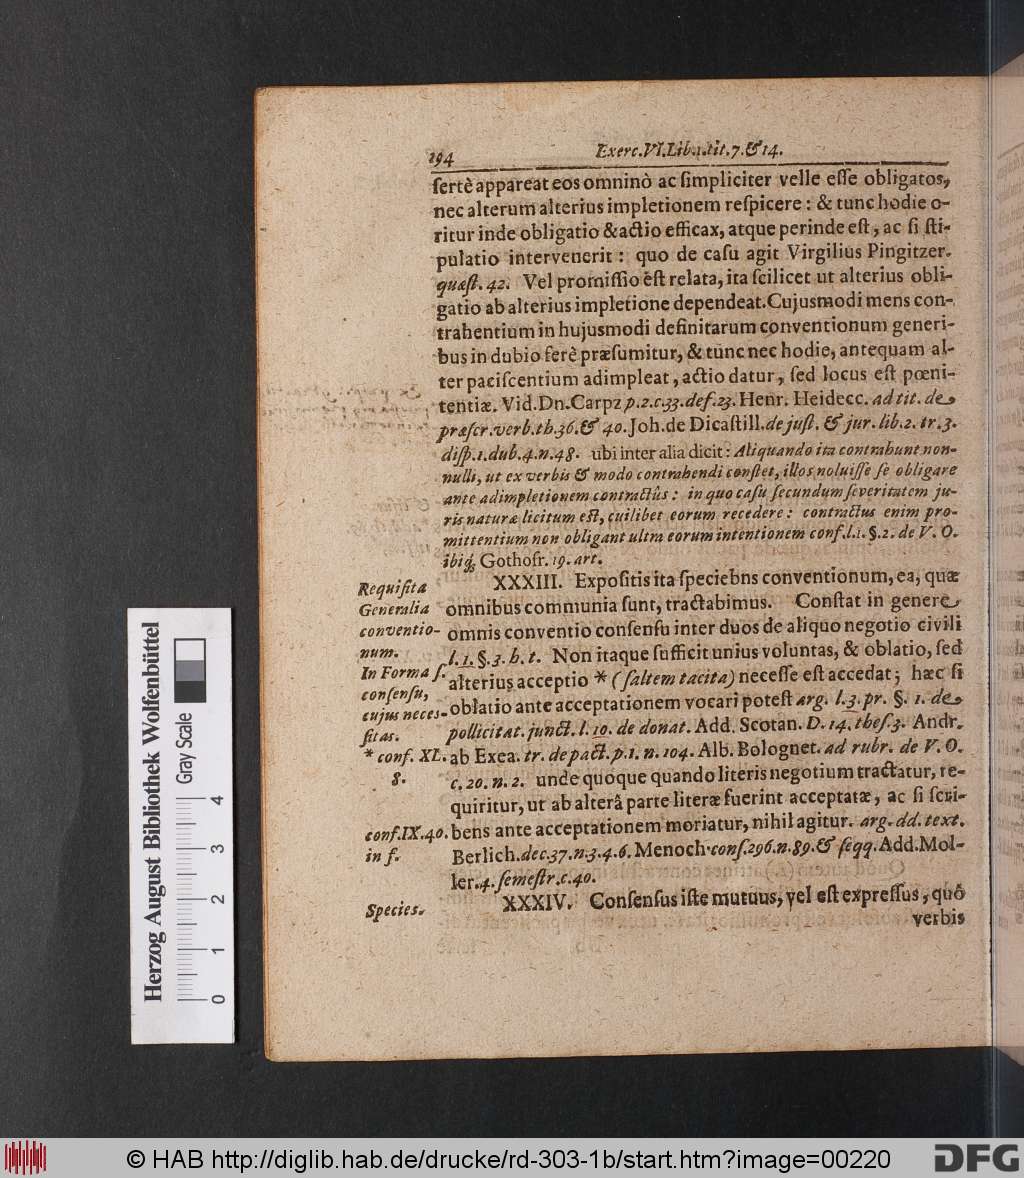 194
Exerc. VI. Lib. 1. tit. 7. & 14.
ſertè appareat eos omninò ac ſimpliciter velle eſſe obligatos,
nec alterum alterius impletionem reſpicere: & tunc hodie o-
ritur inde obligatio & actio efficax, atque perinde eſt, ac ſi ſti-
pulatio intervenerit: quo de caſu agit Virgilius Pingitzer.
quæſt. 42. Vel promiſſio eſt relata, ita ſcilicet ut alterius obli-
gatio ab alterius impletione dependeat. Cujusmodi mens con-
trahentium in hujusmodi definitarum conventionum generi-
bus in dubio ferè præſumitur, & tunc nec hodie, antequam al-
ter paciſcentium adimpleat, actio datur, ſed locus eſt pœni-
tentiæ. Vid. Dn. Carpz p. 2. c. 33. def. 23. Henr. Heidecc. ad tit. de
præſcr. verb. th. 36. & 40. Joh. de Dicaſtill. de juſt. & jur. lib. 2. tr. 3.
diſp. 1. dub. 4. n. 48. ubi inter alia dicit: Aliquando ita contrahunt non-
nulli, ut ex verbis & modo contrahendi conſtet, illos noluiſſe ſe obligare
ante adimpletionem contractûs: in quo caſu ſecundum ſeveritatem ju-
ris naturæ licitum eſt, cuilibet eorum recedere: contractus enim pro-
mittentium non obligant ultra eorum intentionem conf. l. 1. §. 2. de V. O.
ibiq́; Gothofr. 19. art.
Requiſita
Generalia
conventio-
num.
In Forma ſ.
conſenſu,
cujus neces-
ſitas.
* conf. XL.
8.
conf. IX. 40.
in f.
XXXIII. Expoſitis ita ſpeciebns conventionum, ea, quæ
omnibus communia ſunt, tractabimus. Conſtat in genere
omnis conventio conſenſu inter duos de aliquo negotio civili
l. 1. §. 3. h. t. Non itaque ſufficit unius voluntas, & oblatio, ſed
alterius acceptio * (ſaltem tacita) neceſſe eſt accedat; hæc ſi
oblatio ante acceptationem vocari poteſt arg. l. 3. pr. §. 1. de
pollicitat. junct. l. 10. de donat. Add. Scotan. D. 14. theſ. 3. Andr.
ab Exea. tr. de pact. p. 1. n. 104. Alb. Bolognet. ad rubr. de V. O.
c. 20. n. 2. unde quoque quando literis negotium tractatur, re-
quiritur, ut ab alterâ parte literæ fuerint acceptatæ, ac ſi ſcri-
bens ante acceptationem moriatur, nihil agitur. arg. dd. text.
Berlich. dec. 37. n. 3. 4. 6. Menoch. conſ. 296. n. 89. & ſeqq. Add. Mol-
ler. 4. ſemeſtr. c. 40.
Species.
XXXIV. Conſenſus iſte mutuus, vel eſt expreſſus, quô
verbis
Herzog August Bibliothek Wolfenbüttel
Gray Scale
0 1 2 3 4
© HAB http://diglib.hab.de/drucke/rd-303-1b/start.htm?image=00220
DFG